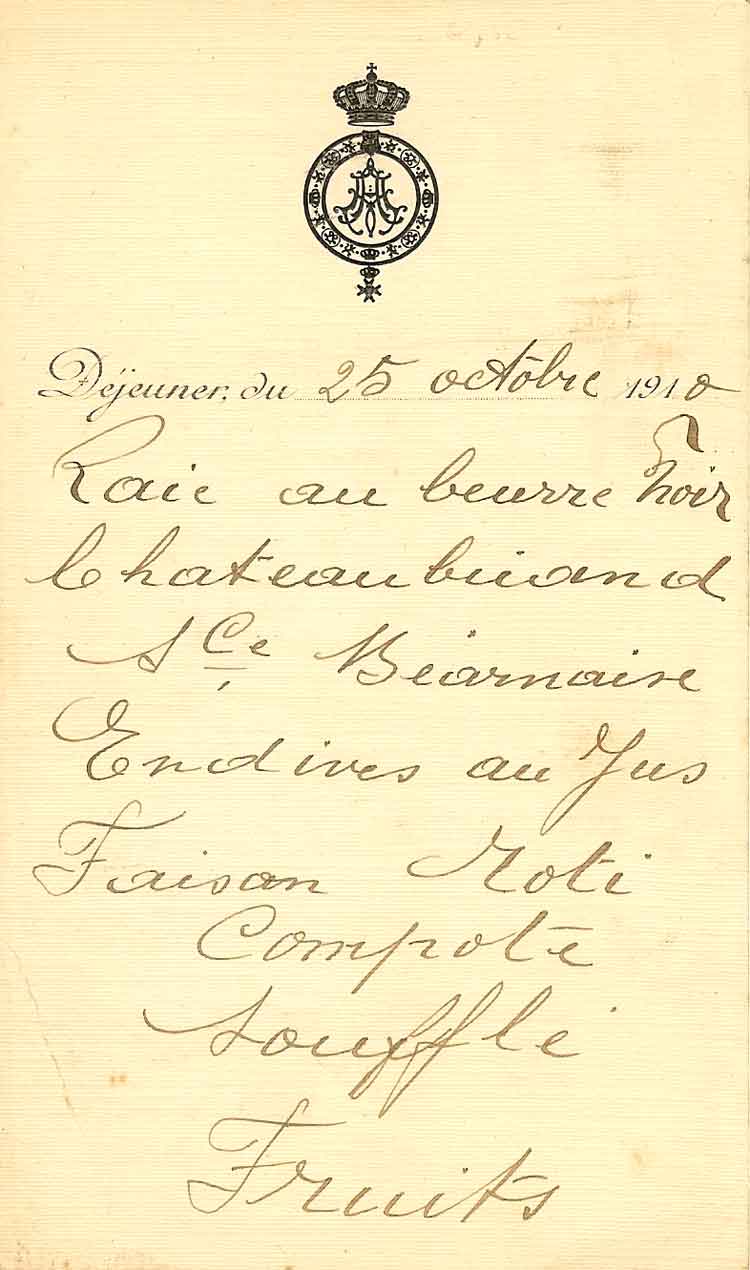 Déjeuner du 25 octobre 1910
Raie au beurre noir
Chateaubriand
Sce Béarnaise
Endives au Jus
Faisan Roti
Compote
Soufflé
Fruits